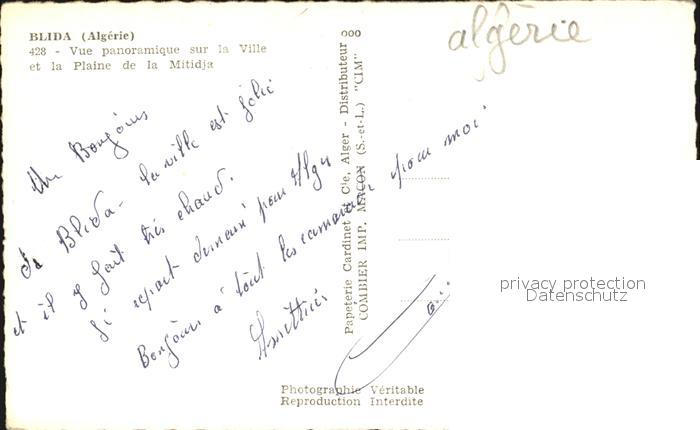 BLIDA (Algérie)
428 - Vue panoramique sur la Ville
et la Plaine de la Mitidja
algérie
Un Bonjour
de Blida - la ville est jolie
et il y fait très chaud.
repart pour Alger
Bonjour à tout les camarades pour moi
Amitiés
ooo
Papeterie Cardinet & Cie, Alger - Distributeur
COMBIER IMP. MACON (S.-et-L.) "CIM"
Photographie Véritable
Reproduction Interdite
privacy protection
Datenschutz